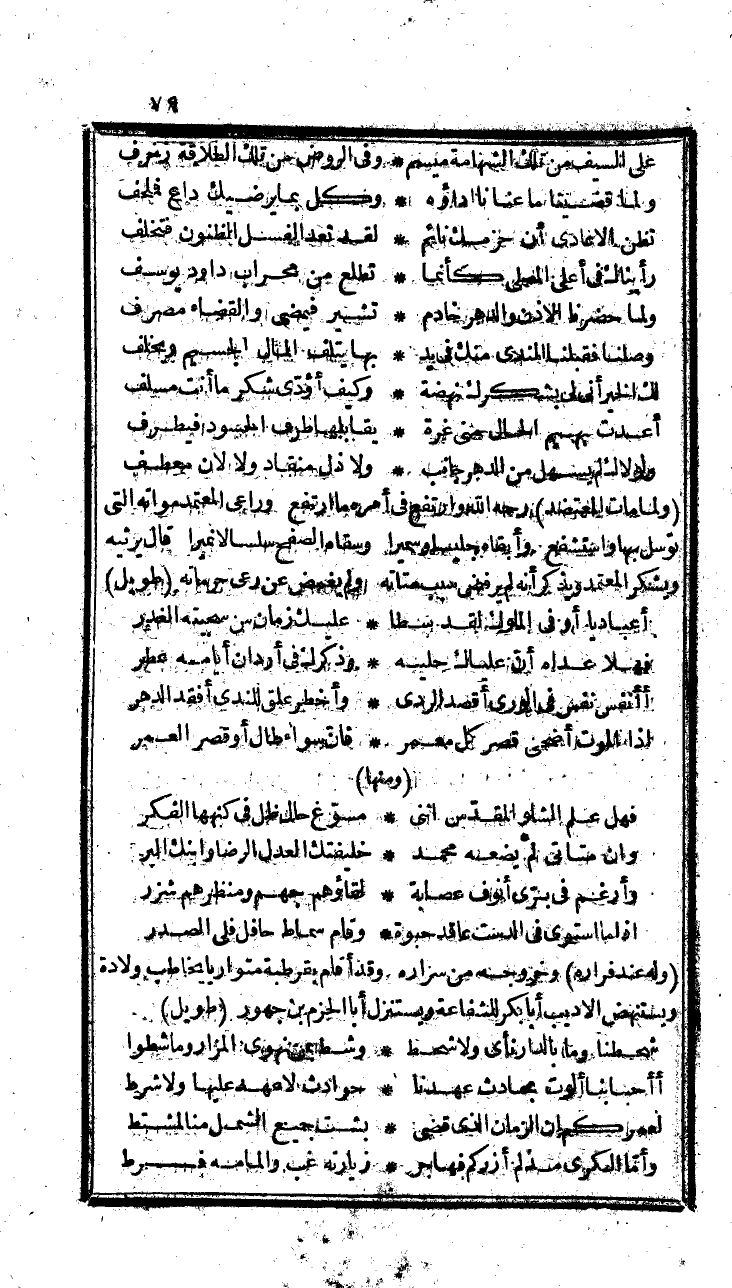 ٧٩
على السيف من تلك الشهامة ميسم * وفى الروض من تلك الطلاقة زخرف
ولما قضينا ما عنانا اداؤه * وكل بما يرضيك داع فملحف
تظن الاعادى أن حزمك نائم * لقد تعد الفسل الظنون فتخلف
رأيناك فى أعلى المصلى كأنما * تطلع من محراب داود يوسف
ولما حضرنا الاذن والدهر خادم * تشير فيمضى والقضاء مصرف
وصلنا فقبلنا الندى منك فى يد * بها يتلف المال الجسيم ويخلف
لك الخير أنى لى بشكرك نهضة * وكيف أؤدى شكر ما أنت مسلف
أعدت بهيم الحال منى غرة * يقابلها طرف الجسود فيطرف
ولولاك لم يسهل من الدهر جانب * ولا ذل منقاد ولا لان معطف
(ولما مات المعتضد) رحمه الله وارتفع فى أمره ما ارتفع وراعى المعتمد مواته التى
توسل بها واستشفع وأبقاه جليسا وسميرا وسقاه الصفح سلسالا نميرا قال يرثيه
ويشكر المعتمد ويذكر أنه لم يرفض سبب متاته ولم يغمض عن رعى حرماته (طويل)
أعباد يا أوفى الملوك لقد سطا * عليك زمان من سجيته الغدر
فهلا عداه أن علياك حليه * وذكرك فى أردان أيامه عطر
أأنفس نفس فى الورى أقصد الردى * وأخطر علق للندى أفقد الدهر
اذا الموت أضحى قصر كل معمر * فان سواء طال أو قصر العمر
(ومنها)
فهل علم الشلو المقدس اننى * مسوغ حال ظل فى كنهها الفكر
وان متاتى لم يضعه محمد * خليفتك العدل الرضا وابنك البر
وأرغم فى برى أنوف عصابة * لقاؤهم جهم ومنظرهم شزر
اذا ما استوى فى الدست عاقد حبوة * وقام سماطا حافل فلى الصدر
(وله عند فراره) وخروجه من سراره وقد أقام بقرطبة متواريا يخاطب ولادة
ويستنهض الاديب أبا بكر للشفاعة ويستنزل أبا الحزم بن جهور (طويل)
شحطنا وما بالدار نأى ولا شحط * وشط بمن نهوى المزار وما شطوا
أأحبابنا ألوت بحادث عهدنا * حوادث لا عهد عليها ولا شرط
لعمركم ان الزمان الذى قضى * بشت جميع الشمل منا لمشتط
وأما الكرى مذ لم أزركم فهاجر * زيارته غب والمامه فرط